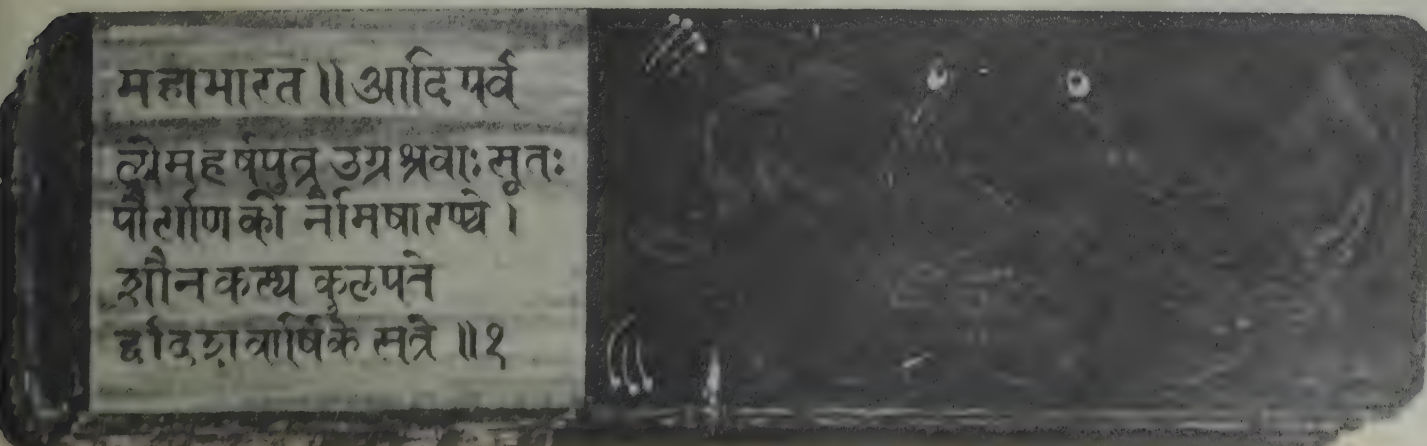 महाभारत ॥ आदि पर्व
लोमहर्षपुत्र उग्रश्रवाः सूतः
पौराणिको नैमिषारण्ये ।
शौनकस्य कुलपते
र्द्वादशवार्षिके सत्रे ॥१